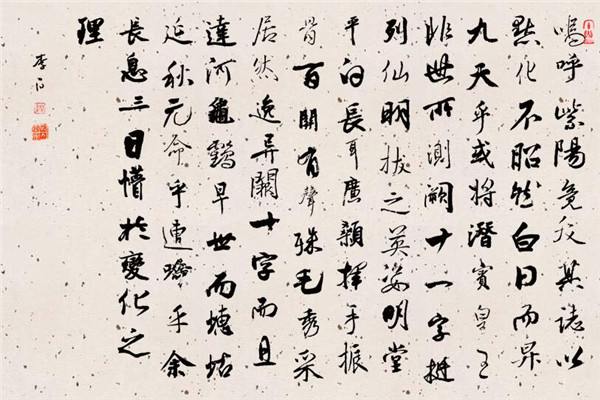 嗚呼紫陽竟夭其誌以
默化不昭然白日而昇
九天乎或將潛賓皇王
非世所測闕十一字挺
列仙明拔之英姿明堂
平白長耳廣顙揮手振
骨百關有聲殊毛秀采
居然逸異闕十字而且
達河龜鶴早世而蟪蛄
延秋元命乎乎余
長息三日懵於變化之
理
李白